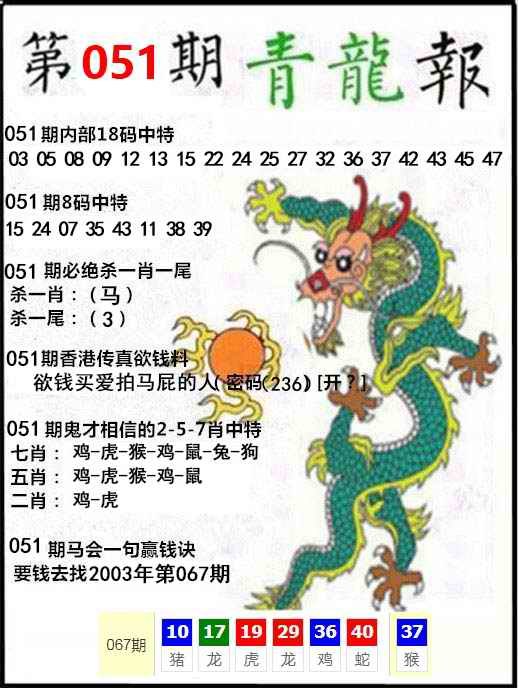 第051期青龍報
051期内部18码中特
03 05 08 09 12 13 15 22 24 25 27 32 36 37 42 43 45 47
051期8码中特
15 24 07 35 43 11 38 39
051 期必绝杀一肖一尾
杀一肖：（马）
杀一尾：（3）
051期香港传真欲钱料
欲钱买爱拍马屁的人(密码(236) [开？]
051期鬼才相信的2-5-7肖中特
七肖： 鸡-虎-猴-鸡-鼠-兔-狗
五肖： 鸡-虎-猴-鸡-鼠
二肖： 鸡-虎
051期马会一句赢钱诀
要钱去找2003年第067期
067期 10 17 19 29 36 40 37
猪 龙 虎 龙 鸡 蛇 猴